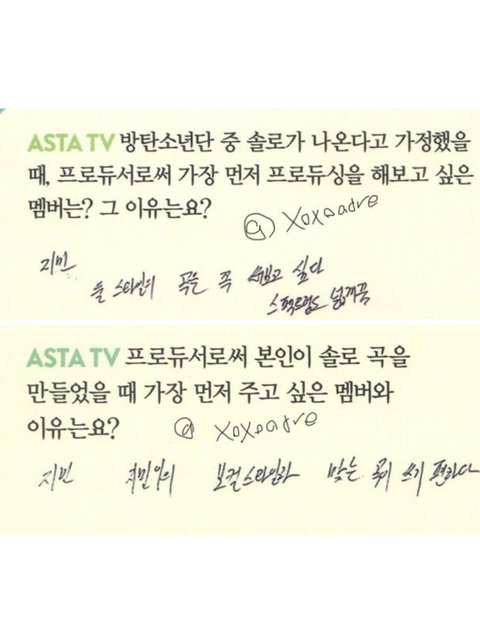 ASTA TV 방탄소년단 중 솔로가 나온다고 가정했을
때, 프로듀서로써 가장 먼저 프로듀싱을 해보고 싶은
멤버는? 그 이유는요?
@ xoxoadre
지민
스타일의 곡을 꼭 써보고 싶다
스펙트럼도 넓게끔
ASTA TV 프로듀서로써 본인이 솔로 곡을
만들었을 때 가장 먼저 주고 싶은 멤버와
이유는요?
@ xoxoadre
지민 지민이의 보컬스타일과 맞는 곡이 쓰기 편하다